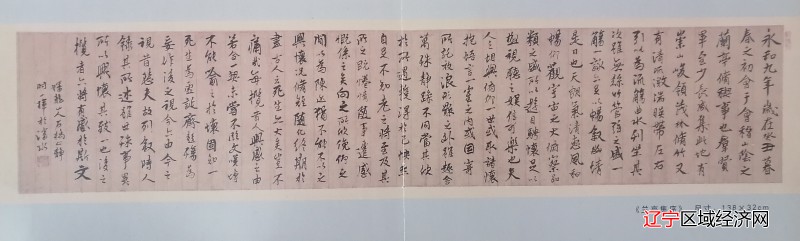 永和九年歲在癸丑暮
春之初會于會稽山陰之
蘭亭脩稧事也羣賢
畢至少長咸集此地有
崇山峻領茂林脩竹又
有清流激湍暎帶左右
引以為流觴曲水列坐其
次雖無絲竹管弦之盛一
觴一詠亦足以暢敘幽情
是日也天朗氣清惠風和
暢仰觀宇宙之大俯察品
類之盛所以遊目騁懷足以
極視聽之娛信可樂也夫
人之相與俯仰一世或取諸懷
抱悟言一室之內或因寄
所託放浪形骸之外雖趣舍
萬殊靜躁不同當其欣
於所遇暫得於己快然
自足不知老之將至及其
所之既惓情隨事遷感
慨係之矣向之所欣俛仰之
間以為陳迹猶不能不以之
興懷況脩短隨化終期於
盡古人云死生亦大矣豈不
痛哉每攬昔人興感之由
若合一契未嘗不臨文嗟悼
不能喻之於懷固知一
死生為虛誕齊彭殤為
妄作後之視今亦由今之
視昔悲夫故列敘時人
錄其所述雖世殊事異
所以興懷其致一也後之
攬者亦將有感於斯文
尺寸：138×32cm
辽宁区域经济网